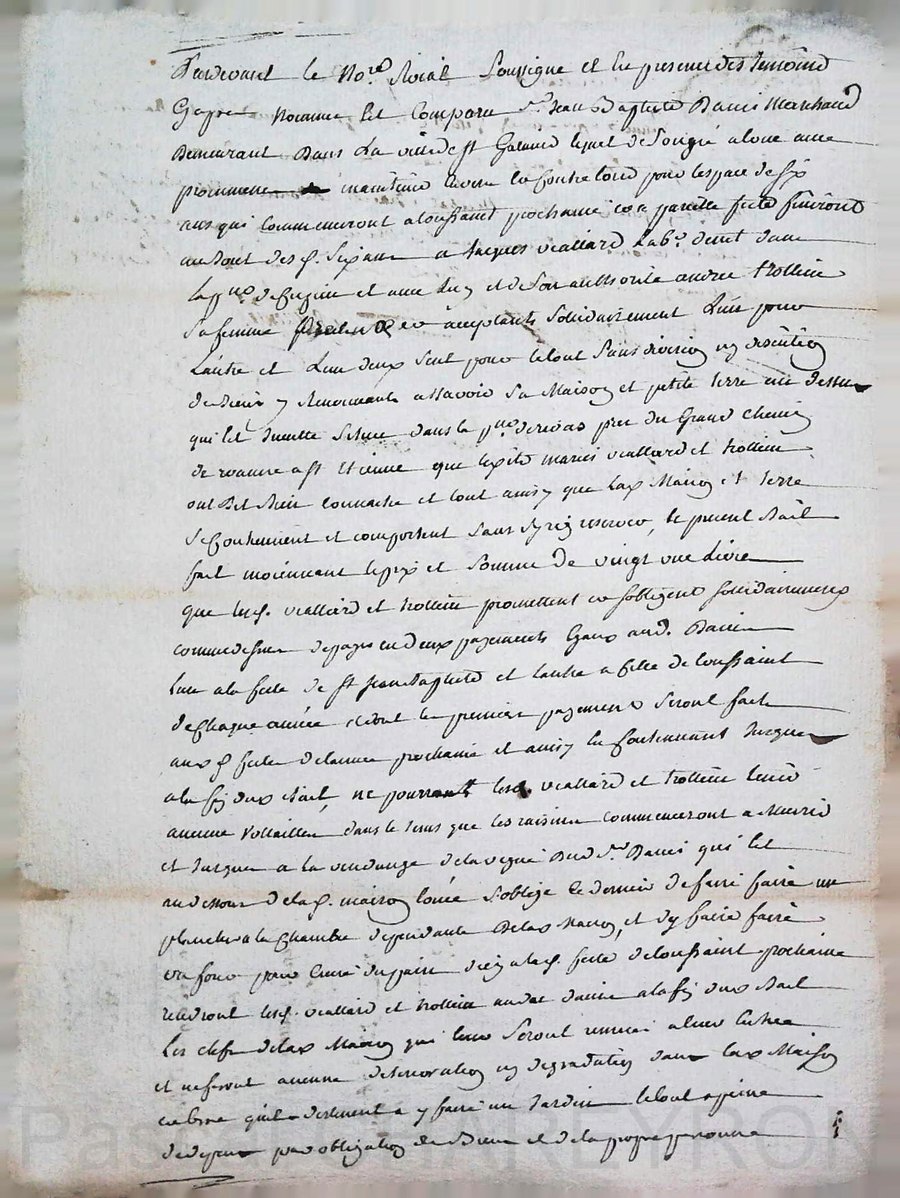 Pardevant le No.re Roial Soussigné et En presence des temoins
Cy apres Nommes Est Comparu s.r Jean Baptiste Danis Marchand
Demeurant Dans La ville de st Galmier lequel de Son gré a loué avec
promesse maintenir livrer la contre tous pour lespace de six
ans qui Commenceront a toussaint prochaine et a pareille feste finiront
au bout des d. Six ans a Jacques viallard Lab.r de et dans
la p.sse de Cuzieu et avec Luy et de Son authorité andrée trolliere
Sa femme acceptants Solidairement L'un pour
L'autre et L'un deux Seul pour le tout Sans division ny discution
de biens y Renonceants assavoir Sa Maison et petite terre au dessus
qui Est Jucelle Situee dans la p.sse de rivas pres du Grand chemin
de roanne a st Etienne que lesd. mariés viallard et trolliere
ont Dit bien connaitre et tout ainsy que lad. Maison et terre
Se Contiennent et comportent Sans Sy rien reserver, le present Bail
fait moiennant le prix et Somme de vingt une Livre
que lesd. viallard et trolliere promettent et Sobligent Solidairement
comme dessus de payer en deux payements Egaux aud. Danis
lun a la feste de st Jean Baptiste et lautre a Celle de toussaint
de Chaque année dont le premier payement Seront fait
aux d. feste de lannée prochaine et ainsy En Continuant Jusques
a la fin dud. Bail, ne pourront lesd. viallard et trolliere tenir
aucune Vollaillen dans le tems que les raisins commenceront a Murir
et Jusques a la vendange de la vigne Dud. s.r Danis qui Est
au dessous de lad. maison louée Soblige ce dernier de faire faire un
plancher a la Chambre dependante De lad. Maison, et dy faire faire
un four pour Cuire du pain Dicy a lad. feste de toussaint prochaine
rendront lesd. viallard et trolliere aud. danis a la fin dud. Bail
Les clefs de lad. Maison qui leur Seront remises a leur Entrée
et ne feront aucune deterioration ny degradation dans lad. Maison
y faire un Jardin le tout a peine
de depens par obligation de Biens et de la propre personne
Pascal CHAREYRON